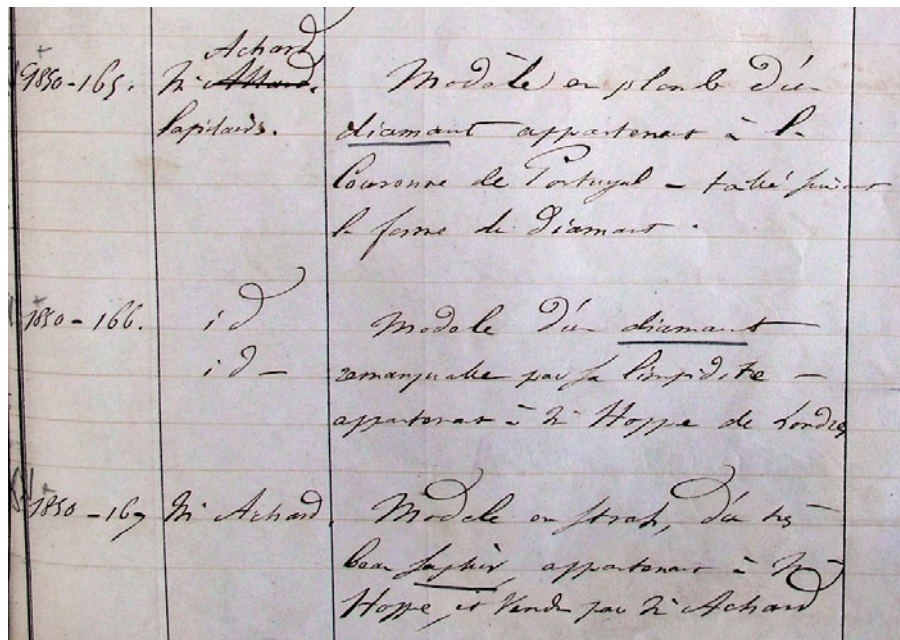 Achard
1850-165. Mr Allard. Modèle en plomb d'un
lapidaire. diamant appartenant à la
Couronne de Portugal – taillé suivant
la forme de Diamant.
1850-166. id Modele d'un diamant
id – remarquable par sa limpidité –
appartenant à Mr Hoppe de Londres
1850-167 Mr Achard. Modele en strass, d'un très
beau saphir, appartenant à Mr
Hoppe, et vendu par Mr Achard